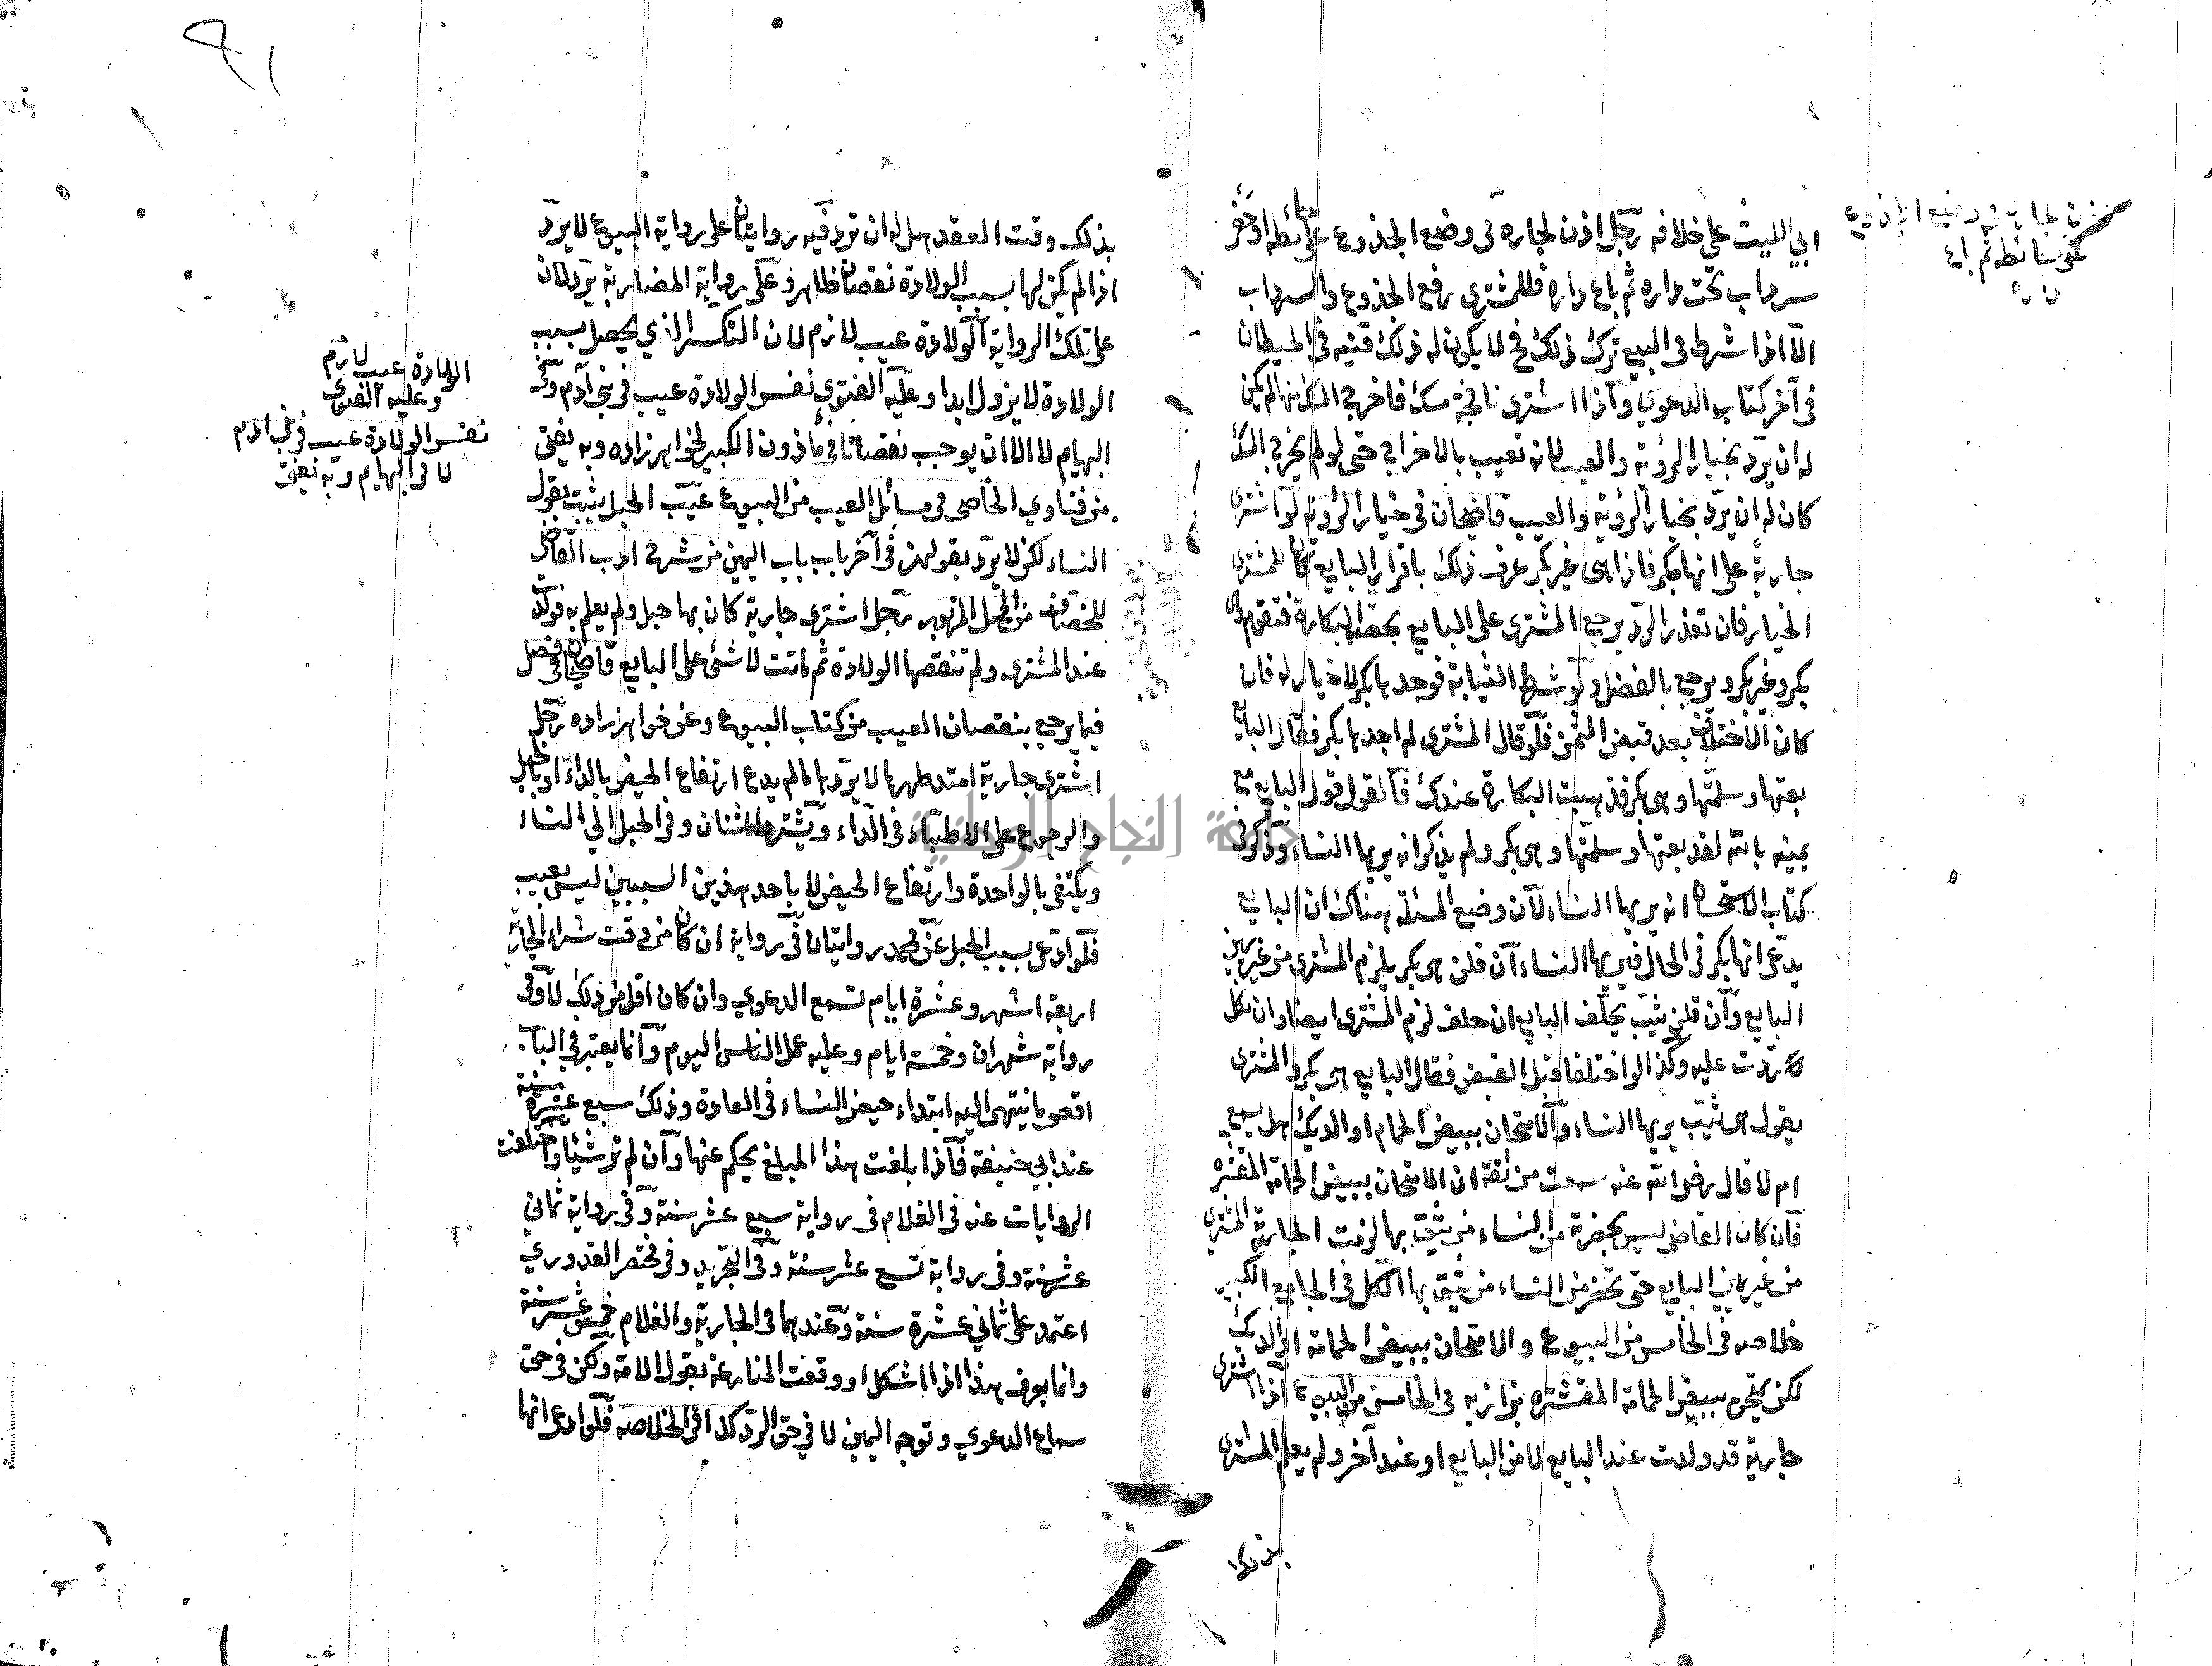 اذن لجاره في وضع الجذوع
على حائطه ثم باع
داره
ابي الليث على خلافه رجل اذن لجاره في وضع الجذوع على حائطه او حفر
سرداب تحت داره ثم باع داره فللمشتري رفع الجذوع والسرداب
الا اذا شرط في البيع ترك ذلك فح لا يكون له ذلك قنيه في الحيطان
في آخر كتاب الدعوى واذا اشترى نافجة مسك فاخرج المسك منها لم يكن
له ان يرد بخيار الرؤية والعيب لانه تعيب بالاخراج حتى لو لم يخرج المسك
كان له ان يرد بخيار الرؤية والعيب قاضيخان في خيار الرؤية لو اشترى
جارية على انها بكر فاذا هي غير بكر عرف ذلك باقرار البايع كان للمشتري
الخيار فان تعذر الرد يرجع المشتري على البايع بحصة البكارة فتقوم
بكر وغير بكر ويرجع بالفضل ولو شرط الثيابة فوجدها بكر لا خيار له فان
كان الاختلاف بعد قبض الثمن فلو قال المشتري لم اجدها بكر فقال البايع
بعتها وسلمتها وهي بكر فذهبت البكارة عندك فالقول قول البايع مع
يمينه بالله لقد بعتها وسلمتها وهي بكر ولم يذكر انه يريها النساء وذكر في
كتاب الاستحسان انه يريها النساء لان وضع المسئلة هناك ان البايع
يدعي انها بكر في الحال فيريها النساء ان قلن هي بكر يلزم المشتري من غير يمين
البايع وان قلن ثيب يحلف البايع ان حلف لزم المشتري ايضا وان نكل
ردت عليه وكذا لو اختلفا قبل القبض فقال البايع هي بكر والمشتري
يقول هي ثيب يريها النساء والامتحان ببيض الحمام او الديك هل يسع
ام لا قال رضي الله عنه سمعت من ثقة ان الامتحان ببيض الحمامة المقشره
فان كان القاضي ليس بحضرته من النساء من يثق بها لزمت الجارية المشتري
من غير يمين البايع حتى تحضر من النساء من يثق بها الكل في الجامع الكبير
خلاصه في الخامس من البيوع والامتحان ببيض الحمامة او الديك
لكن يمتحن ببيض الحمامة المقشره بزازيه في الخامس من البيوع اذا اشترى
جارية قد ولدت عند البايع لا من البايع او عند آخر ولم يعلم المشتري
بذلك
٩١
بذلك وقت العقد هل له ان ترد فيه روايتان على رواية البيوع لا يرد
اذا لم يكن لها بسبب الولادة نقصان ظاهر وعلى رواية المضاربة يرد لان
على تلك الرواية الولادة عيب لازم لان التكسر الذي يحصل بسبب
الولادة لا يزول ابدا وعليه الفتوى نفس الولادة عيب في بني آدم وفي
البهايم لا الا ان يوجب نقصانا في ماذون الكبير لخواهر زاده وبه يفتى
من فتاوي الخاصي في مسائل العيب من البيوع عيب الحبل يثبت بقول
النساء لكن لا يرد بقولهن في آخر باب باب اليمين من شرح ادب القاضي
للخصاف من المحل المزبور رجل اشترى جارية كان بها حبل ولم يعلم به فولدت
عند المشتري ولم تنقصها الولادة ثم ماتت لا شئ على البايع قاضيخان في فصل
فيما يرجع بنقصان العيب من كتاب البيوع وعن خواهر زاده رجل
اشترى جارية امتد طهرها لا يردها ما لم يدع ارتفاع الحيض بالداء او بالحبل
والرجوع على الاطباء في الداء ويشترط اثنان وفي الحبل الي النساء
ويكتفى بالواحدة وارتفاع الحيض لا باحد هذين السببين ليس بعيب
فلو ادعى بسبب الحبل عن محمد روايتان في رواية ان كان من وقت شراء الجارية
اربعة اشهر وعشرة ايام تسمع الدعوى وان كان اقل من ذلك لا وفي
رواية شهران وخمسة ايام وعليه عمل الناس اليوم وانما يعتبر في الباب
اقصى ما ينتهى اليه ابتداء حيض النساء في العادة وذلك سبع عشرة سنة
عند ابي حنيفة فاذا بلغت هذا المبلغ يحكم عنها وان لم تر شيئا واختلفت
الروايات عنه في الغلام في رواية سبع عشر سنة وفي رواية ثماني
عشر سنة وفي رواية تسع عشر سنة وفي التجريد وفي مختصر القدوري
اعتمد على ثماني عشرة سنة وعندهما في الجارية والغلام خمس عشر سنة
وانما يعرف هذا اذا اشكل او وقعت المنازعة بقول الامة ولكن في حق
سماع الدعوي وتوجه اليمين لا في حق الرد كذا في الخلاصه فلو ادعى انها
الولادة عيب لازم
وعليه الفتوى
نفس الولادة عيب في بني ادم
لا في البهايم وبه نفتى
جامعة النجاح الوطنية